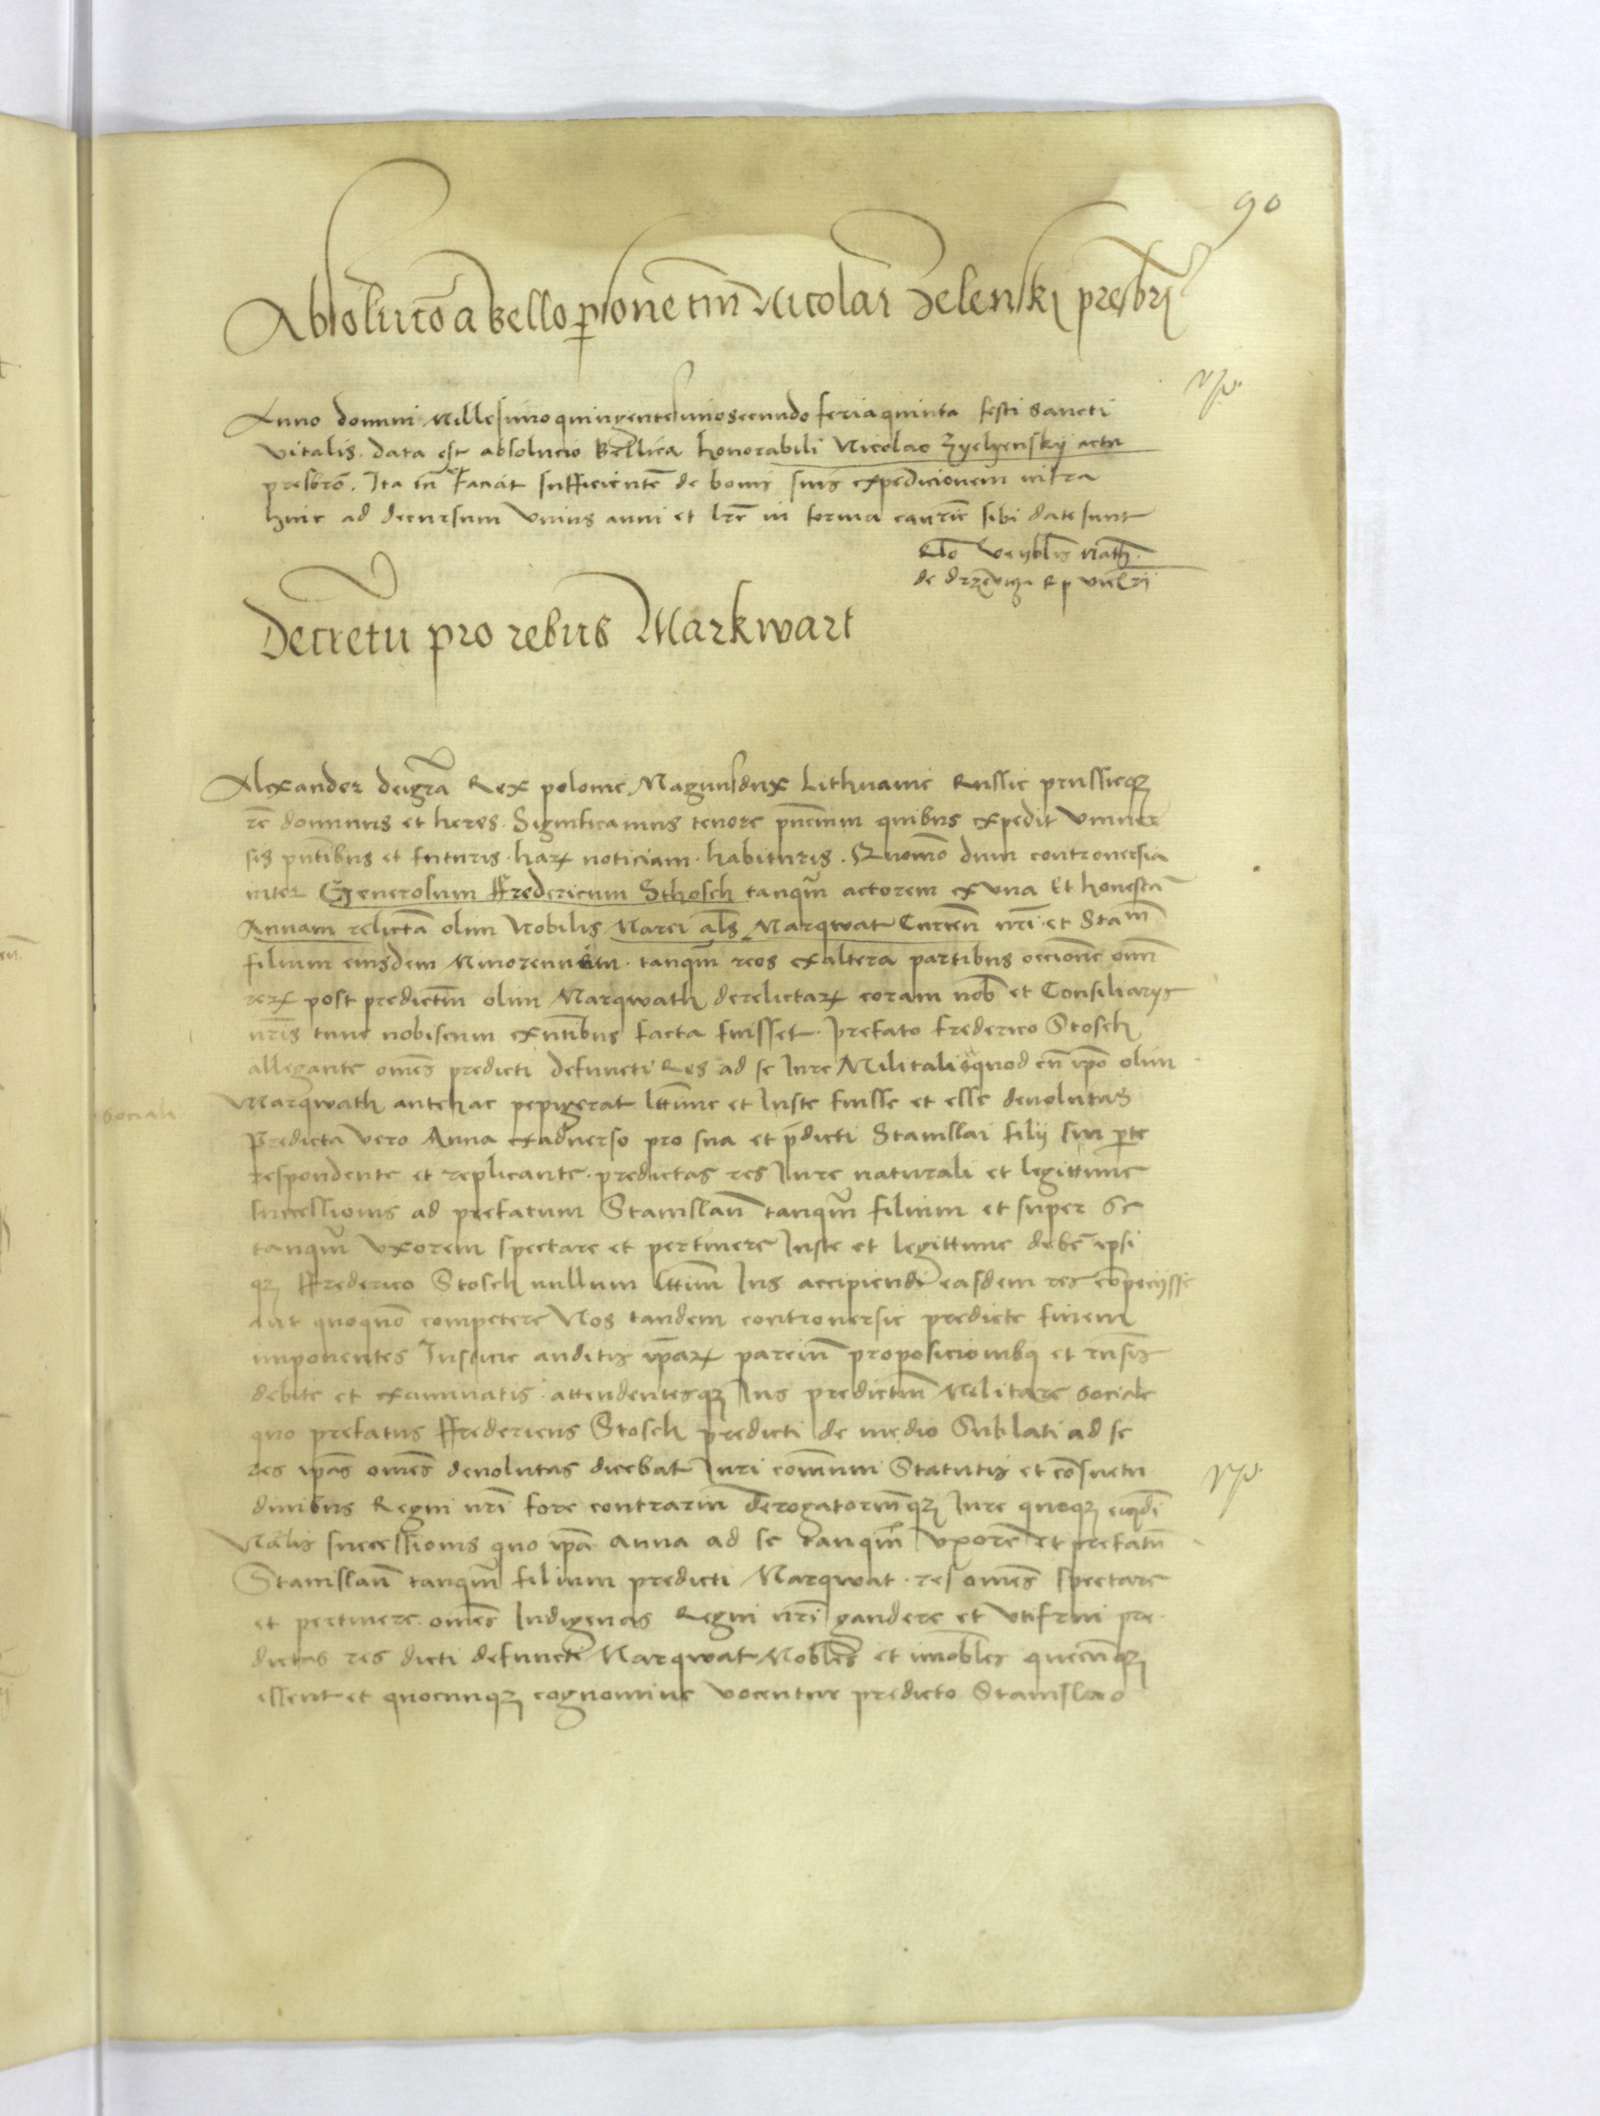 90
Absoluto a bello psone tm Nicolai Zelenski presbri
Anno domini Millesimo quingentesimo secundo feria quinta festi sancti
Vitalis data est absolucio Bellica honorabili Nicolao Zyelyensky actu
presbro. Ita tn faciat sufficiente de bonis suis expedicionem infra
hinc ad decursum Unius anni et lre in forma sibi date sunt
Rlo Veyblis math
de R p vicecri
Decretu pro rebus Markwart
Alexander dei gra Rex polonie Magnusdux Lithuanie Russie prussieqz
re dominus et heres. Significamus tenore pncium quibus expedit Univer
sis pntibus et futuris harz noticiam habituris. Quomo dum controversia
inter Generosum ffredericum Sthosch tanqm actorem ex una Et honesta
Annam relicta olim Nobilis Marci als Marqwat Curien nri et Stam
filium eiusdem Minorennem tanqm reos exaltera partibus occione omn
rerz post predictm olim Marqwath derelictarz coram nob et Consiliarys
nris tunc nobiscum exntibus facta fuisset. Prefato frederico Stosch
allegante omes predicti defuncti Res ad se Iure Militali quod cu ipo olim
sociali
Marqwath antehac pepigerat lttime et Iuste fuisse et esse devolutas
Predicta vero Anna exadverso pro sua et pdicti Stanislai filij sui pte
respondente et replicante predictas res Iure naturali et legittime
successionis ad prefatum Stanislau tanqm filium et super se
tanqm Uxorem spectare et pertinere Iuste et legittime debe ipsi
qz ffrederico Stosch nullum lttim Ius accipiendi easdem res
aut quoquo competere Nos tandem controversie predicte finem
imponentes Iusticie auditis iparz parcium proposicionibq et rnsis
debite et examinatis attendentesqz Ius predictm Militare sociale
quo prefatus ffredericus Stosch predicti de medio Sublati ad se
res ipas omes devolutas dicebat Iuri comuni Statutis et cosuetu
dinibus Regni nri fore contrariu derogatoriuqz Iure quoqz
Nalis successionis quo ipa Anna ad se tanqm Uxore et prefatu
Stanislau tanqm filium predicti Marqwat res omes spectare
et pertinere omes Indigenas Regni nri gaudere et Utifrui pre
dictas res dicti defuncti Marqwat Mobles et imobles quecuqz
essent et quocunqz cognomine vocentur predicto Stanislao